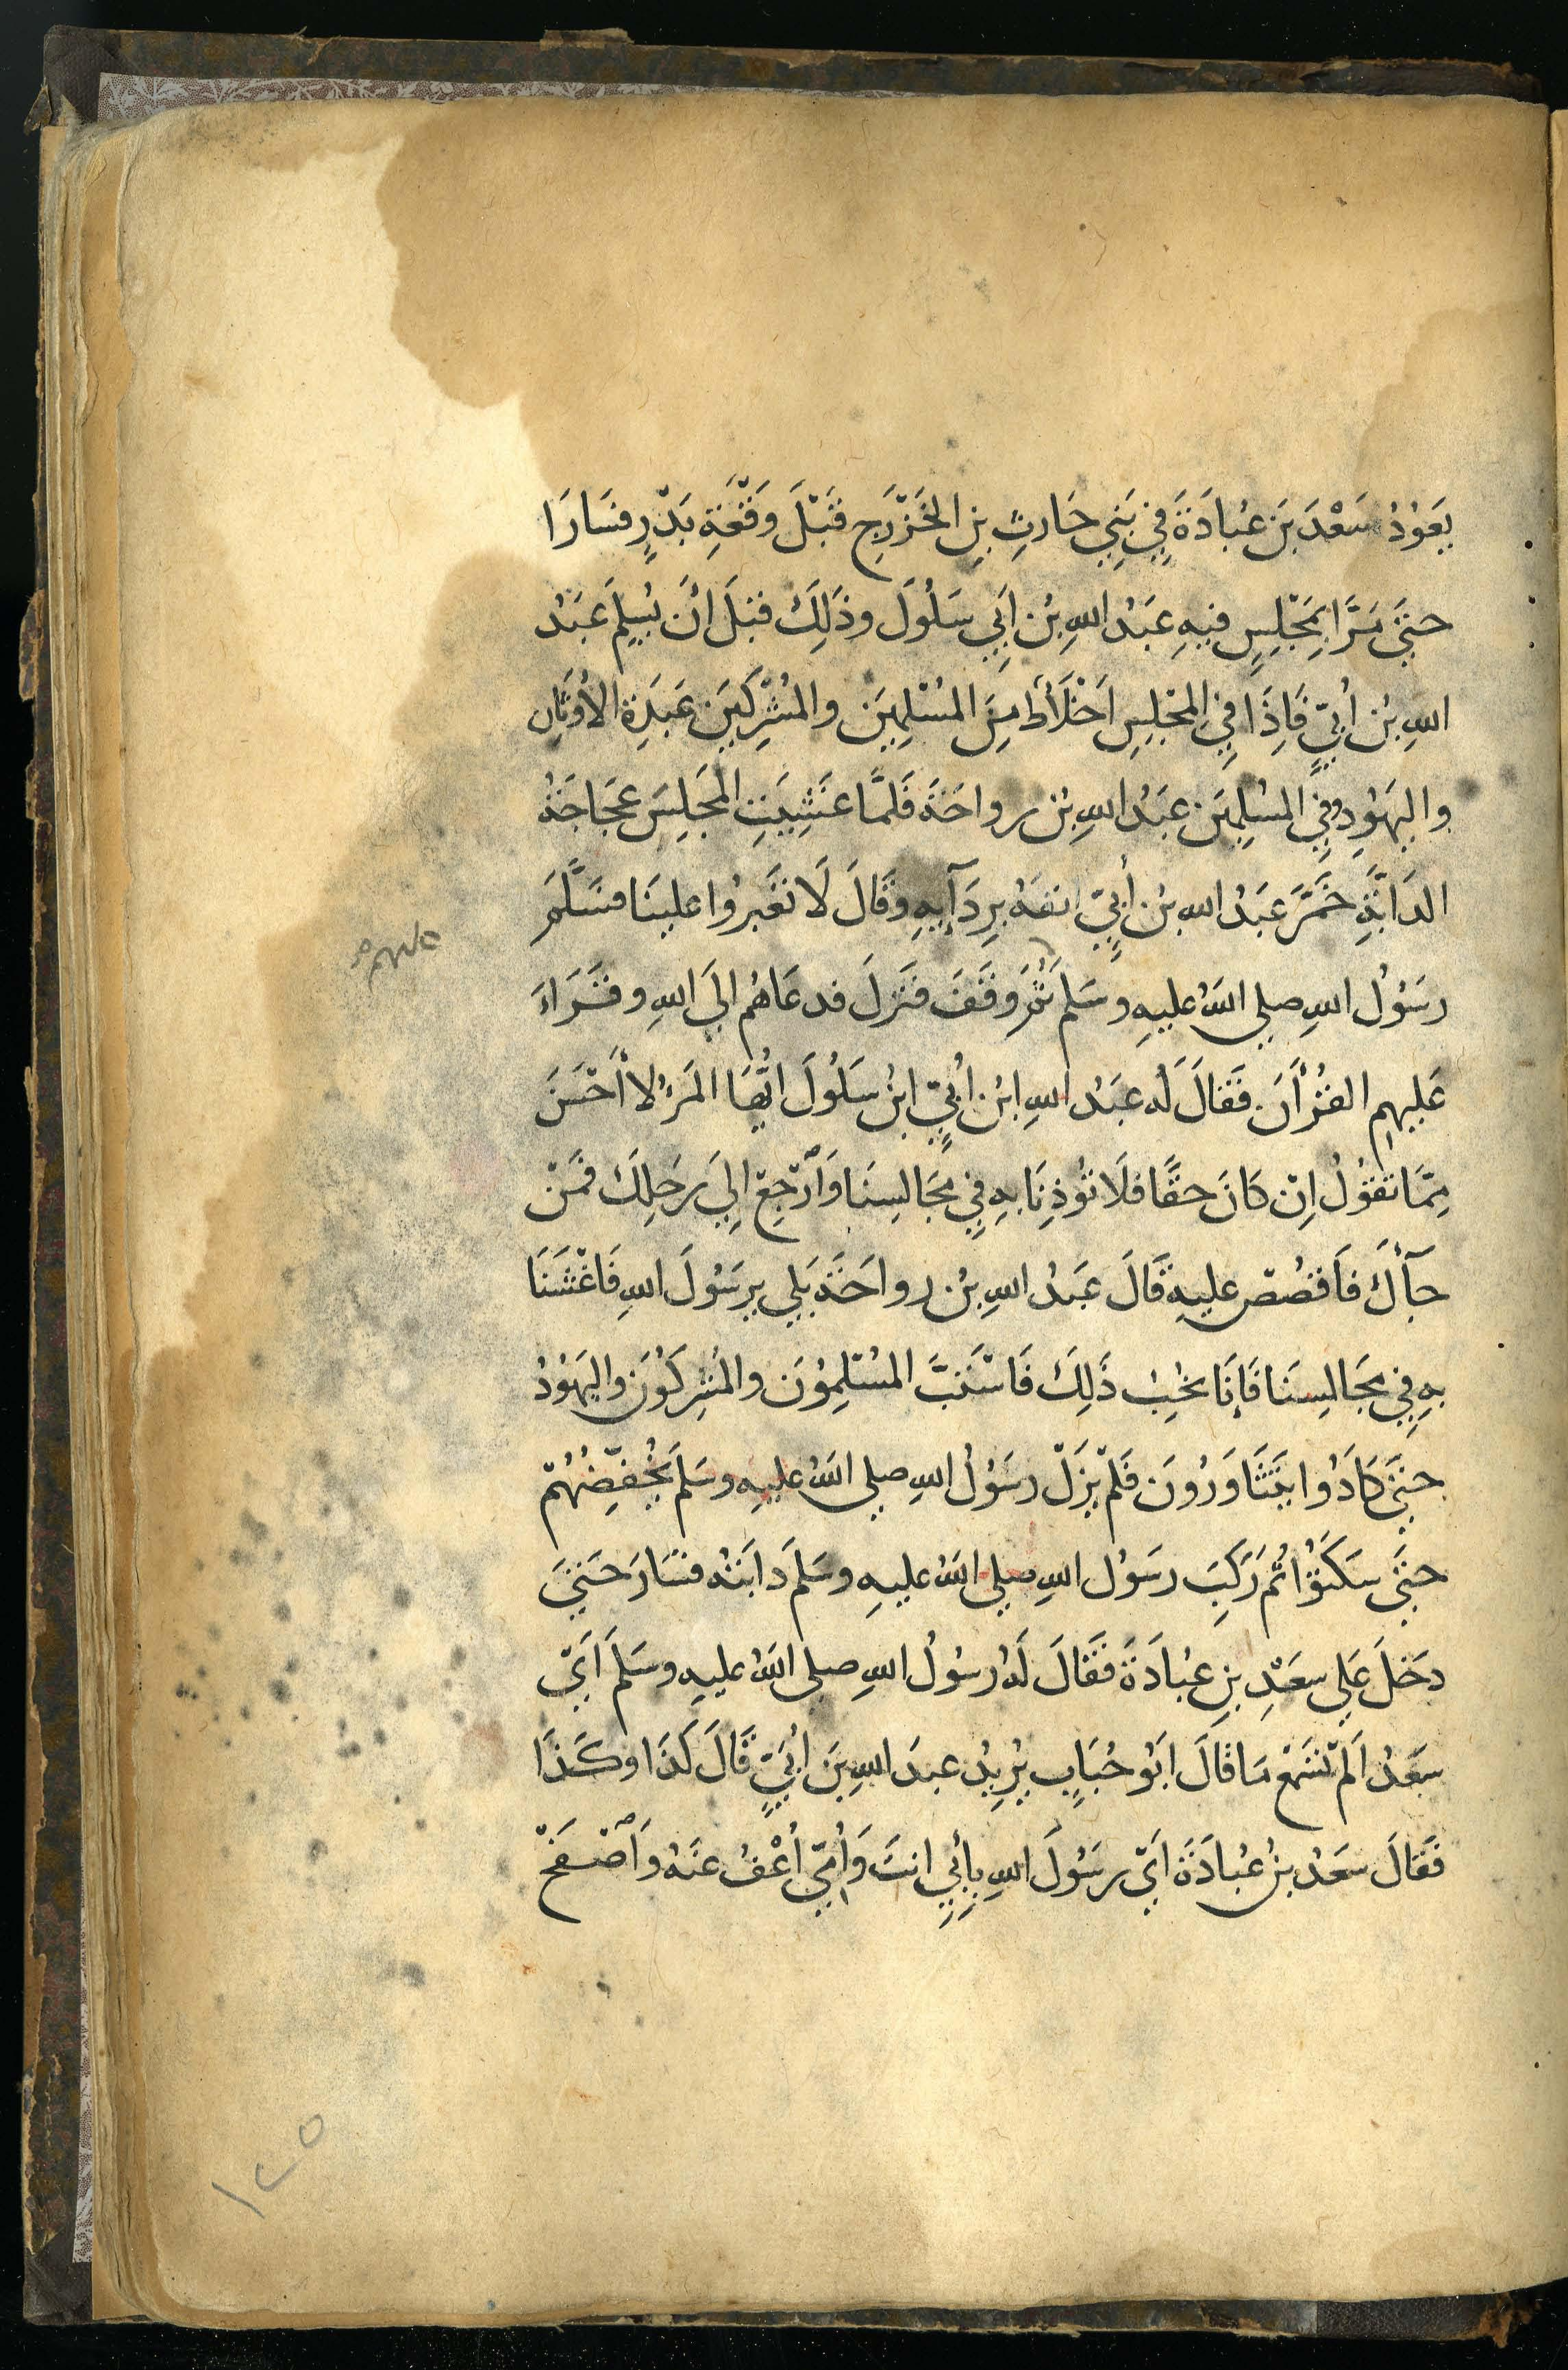 يَعُوْدُ سَعْدَ بَنَ عُبادَةَ فِي بَنِي حَارثِ بنِ الخَزْرَجِ قَبْلَ وَقْعَةِ بَدْرٍ فسَارَا
حتَّى مَرَّا بِمَجْلِسٍ فيهِ عَبَدُ اللهِ بْن اَبِي سَلُولَ وذَلِكَ قبْلَ اَنْ يُسِلمَ عَبَدُ
اللهِ بْن اُبَيّ فَاِذَا فِي المجْلِسِ اَخْلَاطٌ مِنَ المسْلِمِيَن والمُشْرِكَيَن عَبَدَةِ الاَوثَانِ
والَيهَوْدِ وفي المسْلِمِيَن عَبَدُ اللهِ بْن رواحَةَ فَلمَّا غَشِيَتِ المَجَلِسَ عَجَاجَةُ
الدَابَّةِ خَمَّرَ عَبَدُ اللهِ بْن اُبَيّ انفَهُ بِرِدَآيِهِ وقَالَ لَا تغَبّرُوا علينَا فسَلَّمَ
عليهم
رَسَوْلُ اللهِ صلى اللهُ عليهِ وسَلم ثُمَ وقَفَ فنَزلَ فدعَاهُم الَي اللهِ وقَرَاءَ
عَليهِم القُرْاَنَ فَقالَ لَه عَبَدُ اللهِ ابْن اُبَيّ ابنُ سَلُولَ ايُّهَا المَرْءُ لا اَحْسَنَ
مِمَّا تقوُلُ اِنْ كانَ حقًّا فلَا تُوذِنَا بهِ فِي مجَالسِنَا وَاَرْجِعْ اِلَي رَحلِكَ فمَنْ
جَآءَكَ فاَقصُصْ عليهِ قَالَ عَبَدُ اللهِ بْن رواحَةَ بَلي يرسَوُلَ اللهِ فَاغْشَنَا
بهِ فِي مجَالسِنَا فَاِنَا نحُبِ ذَلِكَ فَاسْتَبَّ المسْلِمُوْنَ والمُشْرِكَوُنَ واليَهَوْدُ
حتَّى كَادُوا يَتَثَاوَرُونَ فَلمْ يَزَلْ رسَوُلُ اللهِ صلى اللهُ عليهِ وسَلمَ يُخْفِّضُهُمْ
حتَّى سَكَنوُا ثُم رَكِبَ رسَوُل اللهِ صلى اللهُ عليهِ وسَلمَ دَابَتهُ فسَارَ حَتيَ
دخَلَ عَلي سعَدِ بنِ عُبادَةَ فقَالَ لَهُ رسُولُ اللهِ صلى اللهُ عليهِ وسَلمَ اَيْ
سعَدُ اَلمْ تسَمْعْ مَا قَالَ ابَوُ حُبَابٍ يُرِيدُ عبدَ اللهِ بَن اُبَيّ قَالَ كَذَا وكَذَا
فقَالَ سعَدُ بْن عُبادَةَ اَيْ رسَوُلَ اللهِ بأبِي انتَ وَاُمّي اُعْفُ عنَهُ وَاَصْفَحْ
١٢٥